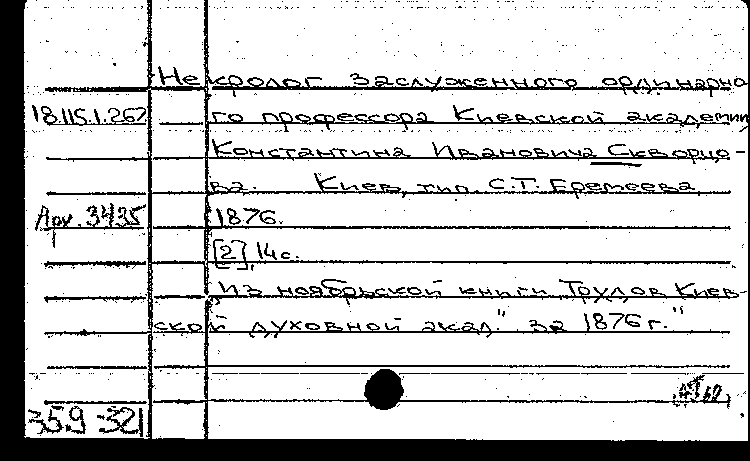 Некролог заслуженного ординарно
18.115.1.262 го профессора Киевской академии
Константина Ивановича Скворцо-
ва. Киев, тип. С.Т. Еремеева,
1876.
[2], 14 с.
"Из ноябрьской книги "Трудов Киев-
ской духовной акад." за 1876 г."
359-321